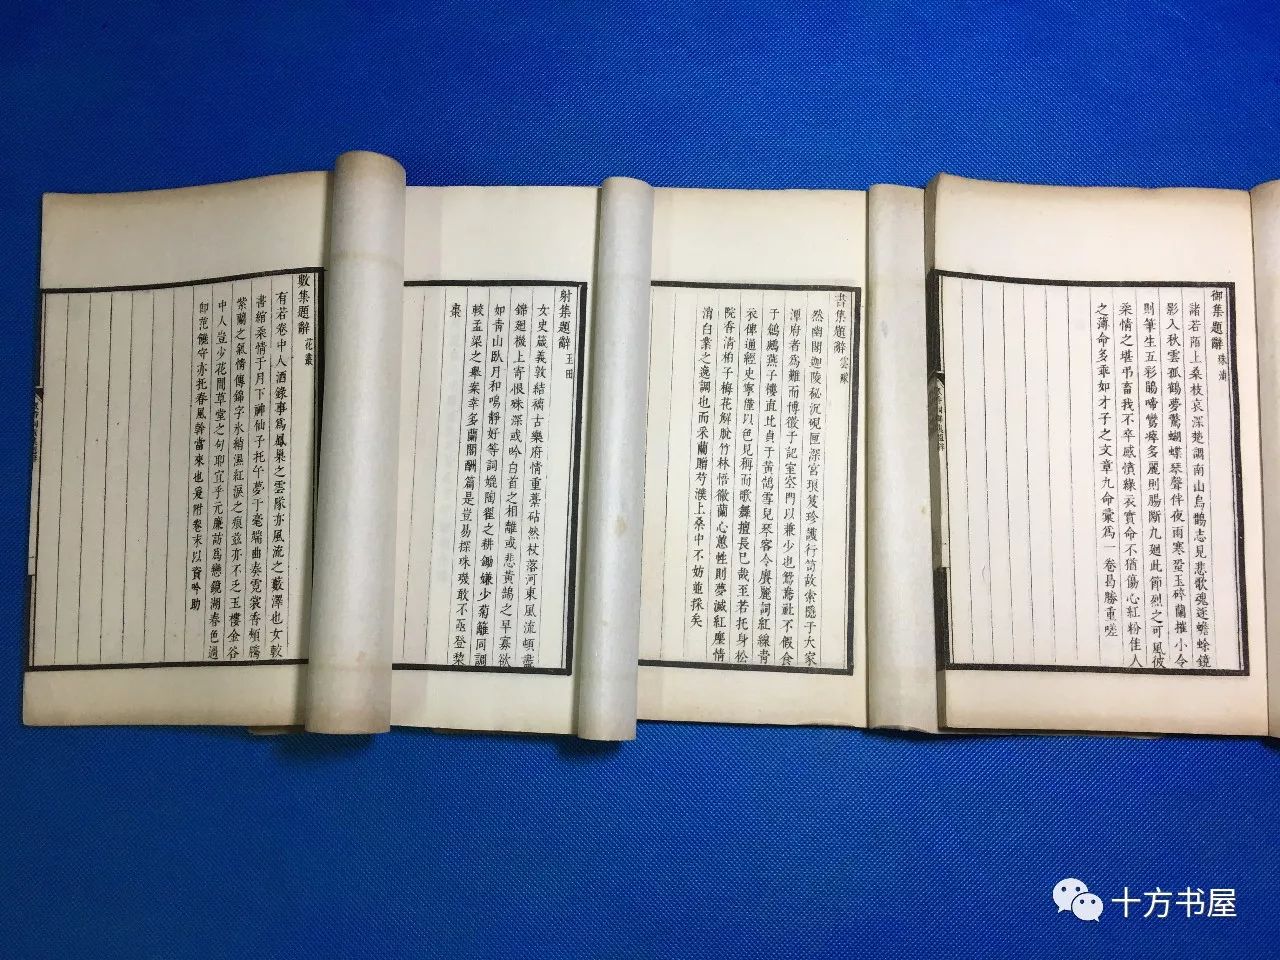 御集題辭 珠浦
諸若陌上桑枝哀深楚調南山烏鵲志見悲歌魂迷蟾蜍鏡
影入秋雲孤鶴夢驚蝴蝶琴聲伴夜雨寒螿玉碎蘭摧小令
則筆生五彩鵑啼鸞瘁多麗則腸斷九廻此節烈之可風彼
柔情之堪弔畜我不卒感憤綠衣實命不猶傷心紅粉佳人
之薄命多乖如才子之文章九命彙爲一卷曷勝重嗟
書集題辭 雲
然幽閣迦陵秘沉硯匣深宮琅笈珍護行笥故索隱于大家
潭府者爲難而博徵于記室空門以兼少也鴛鴦社不假食
于鶼鶼燕子樓直比貞于黃鵠雪兒琴客令賡麗詞紅線靑
衣俾通經史寧僅以色見稱而歌舞擅長已哉至若托身松
院香清柏子梅花解脫竹林悟徹蘭心蕙性則夢滅紅塵情
消白業之逸調也而采蘭贈芍濮上桑中不妨並採矣
射集題辭 玉田
女史箴義敦結褵古樂府情重藁砧然杖落河東風流頓盡
錦廻機上寄恨殊深或吟白首之相離或悲黃鵠之早寡欲
如青山臥月和鳴靜好等詞媲陶翟之耕鋤嫌少菊籬同調
較孟梁之舉案幸多蘭閣酬篇是豈易探珠璣敢不亟登棃
棗
數集題辭 花叢
有若卷中人酒錄事爲鳳巢之雲隊亦風流之藪澤也女較
書綰柔情于月下神仙子托午夢于毫端曲奏霓裳香頓騰
紫蘭之氣情傳錦字氷綃濕紅淚之痕茲亦不乏玉樓金谷
中人豈少花間草堂之句聊宜乎元廉訪爲戀鏡湖春色過
卽范饒守亦托春風幹當來也爰附卷末以資吟助
十方书屋